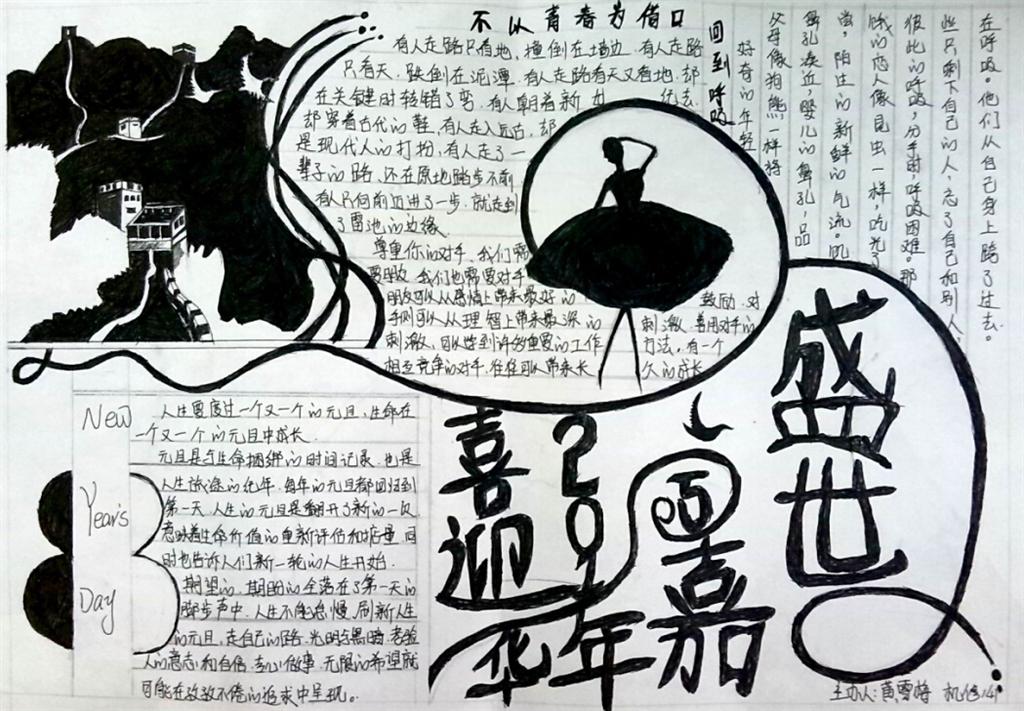 不以青春为借口
有人走路只看地，撞倒在墙边，有人走路
只看天，跌倒在泥潭，有人走路看天又看地，却
在关键时转错了弯，有人朝着新
却穿着古代的鞋，有人走入远古，却
是现代人的打扮，有人走了一
辈子的路，还在原地踏步不前
有人只向前迈进了一步，就走到
了雷池的边缘。
尊重你的对手，我们需
要朋友，我们也需要对手
朋友可以从感情上带来最好的鼓励，对
手则可以从理智上带来最深的刺激，善用对手的
刺激，可以学到许多重要的工作方法，有一个
相互竞争的对手，往往可以带来长久的成长
回到呼吸
好奇的年轻
父母像狗熊一样将
鼻孔凑近，婴儿的鼻孔，品
尝，陌生的新鲜的气流。饥
饿的恋人像昆虫一样，吃光了
彼此的呼吸，分手时，呼吸困难。那
些只剩下自己的人，忘了自己和别人
在呼吸。他们从自己身上踏了过去。
New
Year's
Day
人生要度过一个又一个的元旦，生命在
一个又一个的元旦中成长．
元旦是与生命捆绑的时间记录，也是
人生旅途的纪年．每年的元旦都回归到
第一天，人生的元旦是翻开了新的一页
意味着生命价值的重新评估和估量，同
时也告诉人们新一轮的人生开始．
期望的、期盼的全落在了第一天的
脚步声中，人生不能怠慢，刷新人生
的元旦，走自己的路，光明与黑暗，考验
人的意志和自信，专心做事，无限的希望就
可能在孜孜不倦的追求中呈现。
喜迎
201
年
百嘉
盛世
华
主办人：黄雪梅